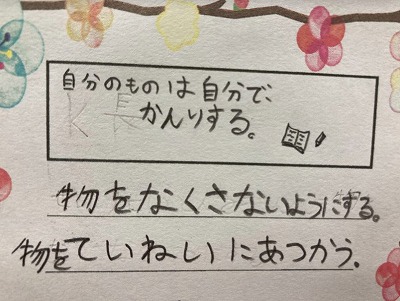 自分のものは自分で、
かんりする。
物をなくさないようにする。
物をていねいにあつかう.